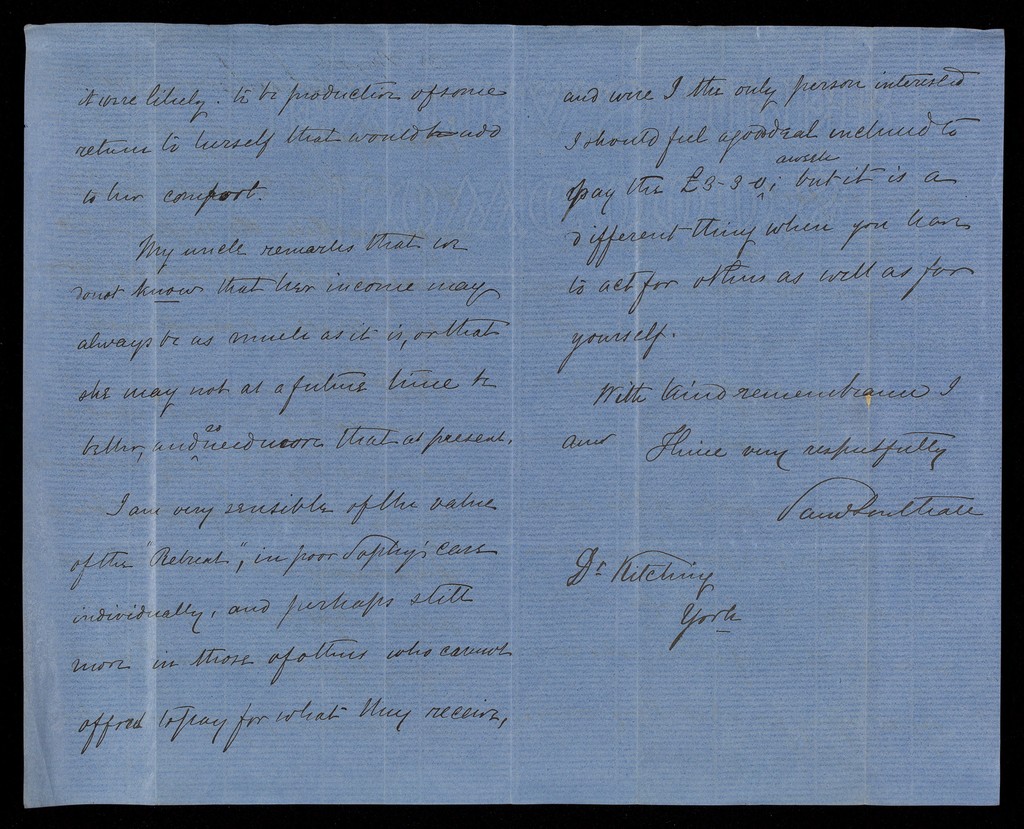 it were likely. to be productive of some
return to herself that would be add
to her comfort.
My uncle remarks that we
do not know that her income may
always be as much as it is, or that
she may not at a future time be
better, and so need more that at present.
I am very sensible of the value
of the "Retreat", in poor Sophy's case
individually, and perhaps still
more in those of others who cannot
afford to pay for what they receive,
and were I the only person interested
I should feel a good deal inclined to
pay the £3-3-0 a week; but it is a
different thing when you have
to act for others as well as for
yourself.
With kind remembrance I
am Thine very respectfully
Saml Southall
Dr Kitching
York